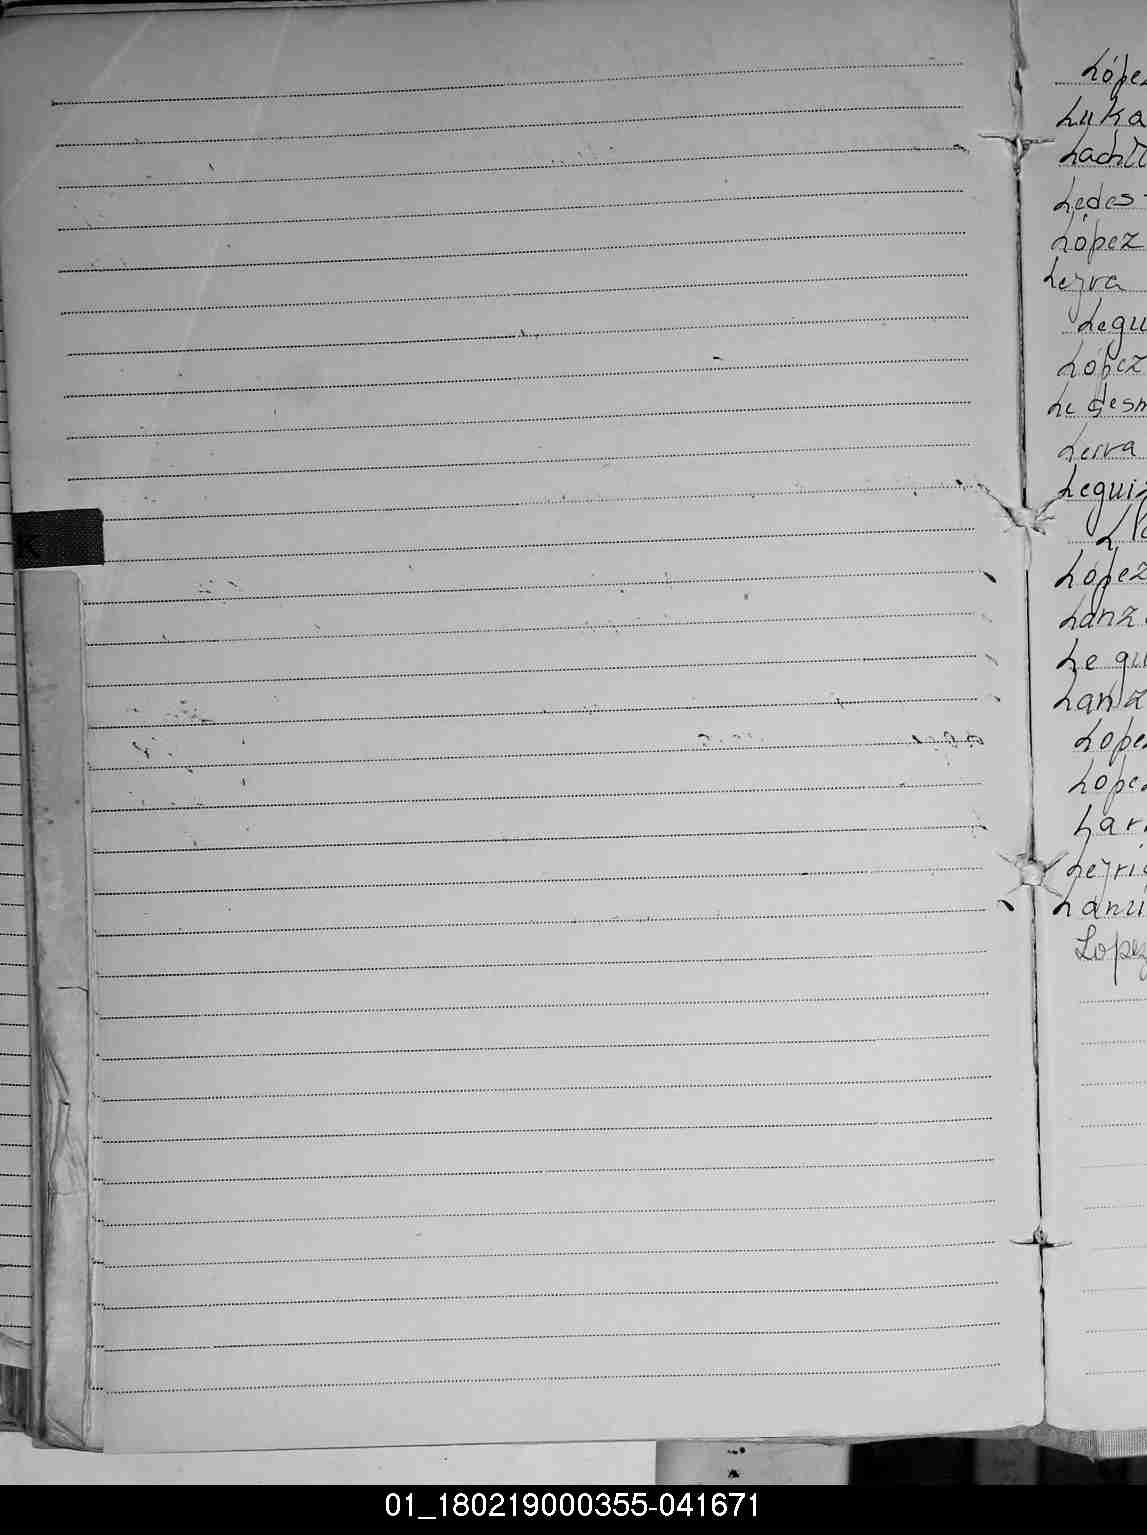 K
Lópe
Luka
Lachi
Ledes
López
Leyva
Legu
López
Ledesm
Leiva
Leguiz
López
Lanz
Legui
Lanz
Lope
Lope
Lar
Leyri
Lanu
Lopez
01_180219000355-041671